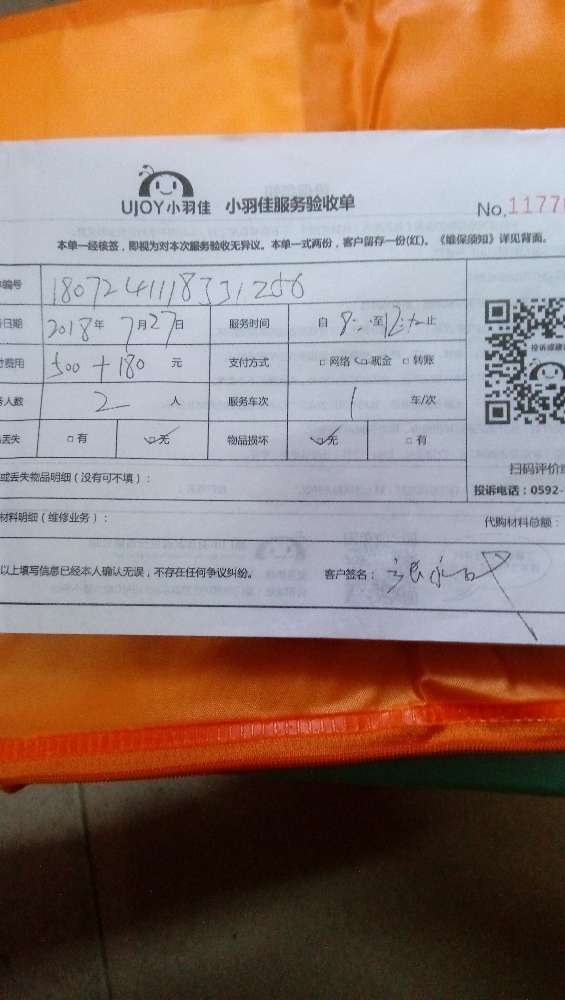 UJOY小羽佳 小羽佳服务验收单
No.1177
本单一经核签，即视为对本次服务验收无异议。本单一式两份，客户留存一份(红)。《维保须知》详见背面。
编号 1807241118331256
日期 2018年7月27日 服务时间 自 8:00 至 12:00 止
费用 500+180 元 支付方式 □网络 ☑现金 □转账
人数 2 人 服务车次 1 车/次
丢失 □有 ☑无 物品损坏 ☑无 □有
或丢失物品明细（没有可不填）：
材料明细（维修业务）： 代购材料总额：
以上填写信息已经本人确认无误，不存在任何争议纠纷。 客户签名：
扫码评价
投诉电话：0592-